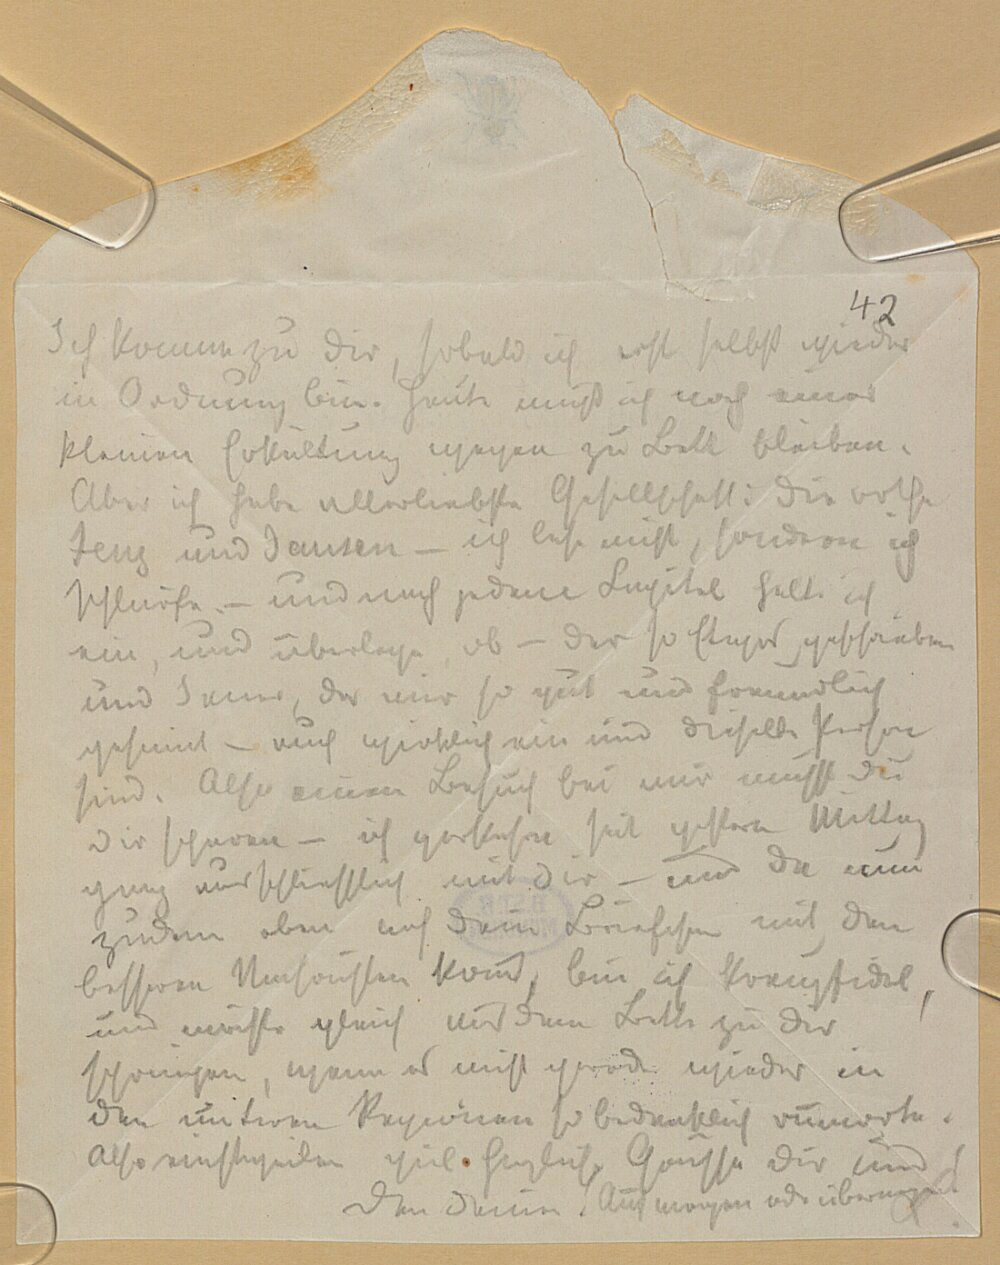 42
Ich komme zu Dir, sobald ich erst selbst wieder
in Ordnung bin. Heute muß ich noch einer
kleinen Erkältung wegen zu Bett bleiben.
Aber ich habe allerliebste Gesellschaft: Die rothe
und Jansen – ich lese nicht, sondern ich
schlürfe – und nach jedem Capitel halte ich
ein, und überlege, ob – der so Etwas geschrieben
und Jener, der mir so gut und freundlich
gesinnt – auch wirklich ein und dieselbe Person
sind. Also einen Besuch bei mir mußt Du
Dir sparen – ich verkehre seit gestern Mittag
ganz ausschließlich mit Dir – und da nun
zudem eben auch Dein Briefchen mit den
besseren Nachrichten kam, bin ich kreuzfidel,
und möchte gleich aus dem Bette zu Dir
springen, wenn es nicht gerade wieder in
den unteren Regionen so bedenklich rumorte.
Also einstweilen viel herzliche Grüße Dir und
den Deinen! Auf morgen oder übermorgen!